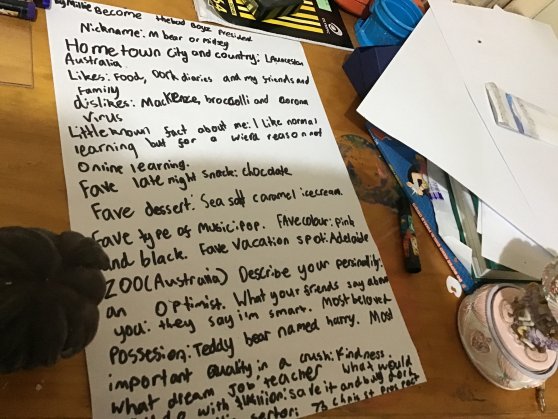 By Millie Become thebad Boyz President
Nickname: M bear or midzey
Home town City and country: Launceston
Australia
Likes: Food, Dork diaries and my friends and
Family
dislikes: MacKenze, broccolli and corona
Virus
Little known fact about me: I like normal
learning but for a wierd reason not
Online learning.
Fave late night snack: chocolate
Fave dessert: Sea salt caramel icecream
Fave type of music: Pop. Fave colour: pink
and black. Fave Vacation spot: Adelaide
ZOO (Australia) Describe your personility:
an Optimist. What your friends say about
you: they say i'm smart. Most beloved
Possesion: Teddy bear named harry. Most
important quality in a crush: Kindness.
What dream Job: teacher What would
with $1 million: save it and buy dork